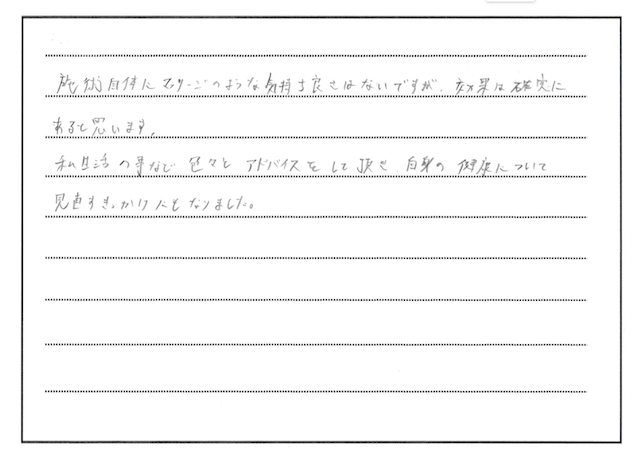 施術自体にマッサージのような気持ち良さはないですが、効果は確実に
あると思います。
私生活の事など色々とアドバイスをして頂き、自身の健康について
見直すきっかけにもなりました。